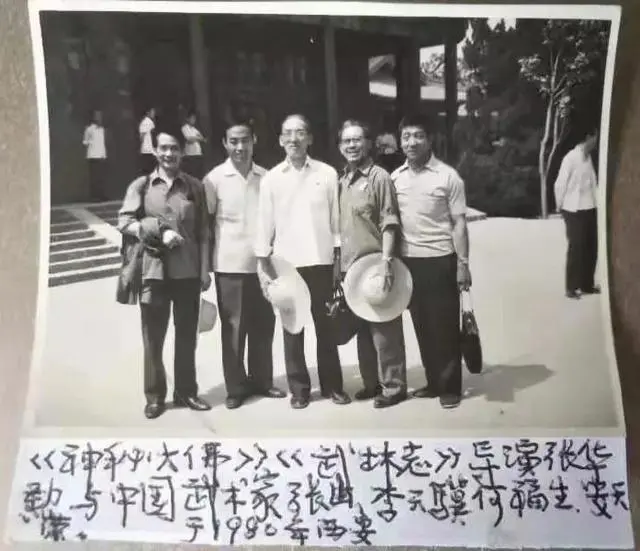 《神秘大佛》《武林志》导演张华
勋与中国武术家张山、李天骥何福生、安天
荣。 于1980年西安